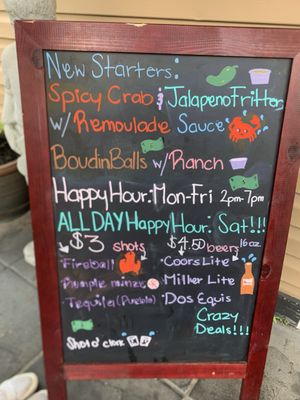 New Starters:
Spicy Crab & Jalapeno Fritters
w/ Remoulade Sauce
Boudin Balls w/ Ranch
Happy Hour: Mon-Fri 2pm-7pm
ALL DAY Happy Hour: Sat!!!
$3 shots $4.50 beers 16oz
Fireball Coors Lite
Rumple minze Miller Lite
Tequila (Pueblo) Dos Equis
Crazy
Deals!!!
Shot o' clock